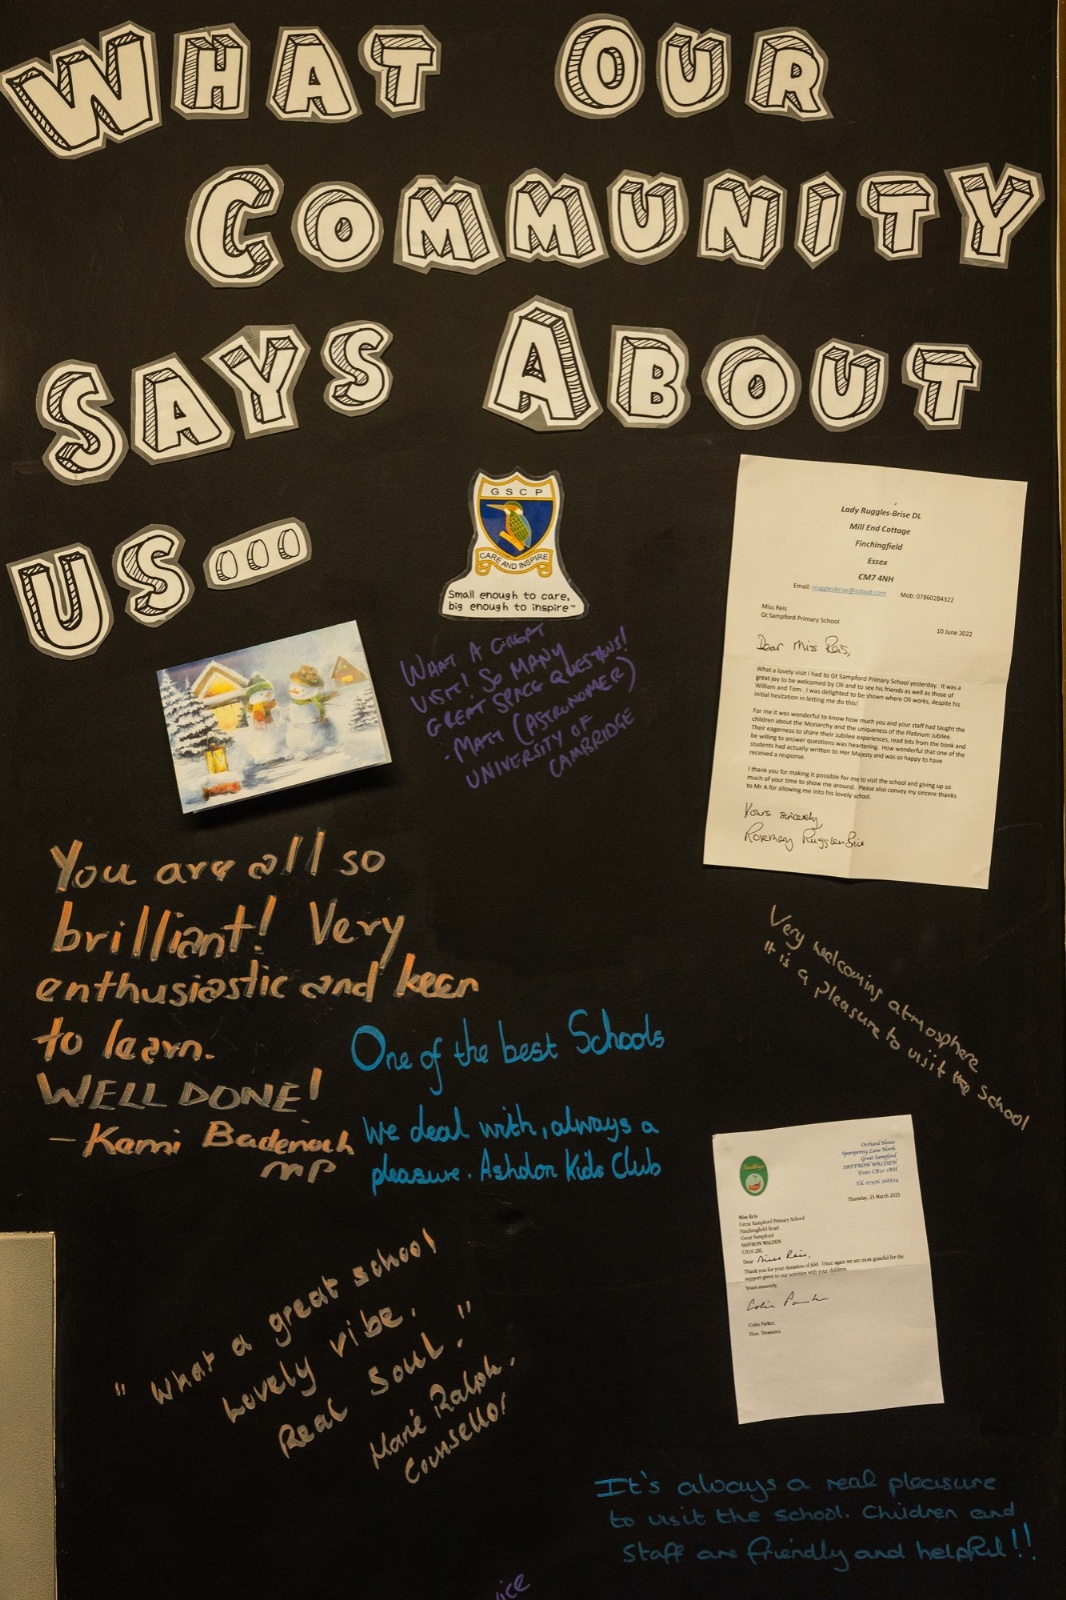 WHAT OUR
COMMUNITY
SAYS ABOUT
US...
GSCP
CARE AND INSPIRE
Small enough to care,
big enough to inspire™
WHAT A GREAT
VISIT! SO MANY
GREAT SPACE QUESTIONS!
- MATT (ASTRONOMER)
UNIVERSITY OF
CAMBRIDGE
Lady Ruggles-Brise DL
Mill End Cottage
Finchingfield
Essex
CM7 4NH
Email: rugglesbrise@icloud.com Mob: 07860284322
Miss Reis
Gt Sampford Primary School
10 June 2022
Dear Miss Reis,
What a lovely visit I had to Gt Sampford Primary School yesterday. It was a
great joy to be welcomed by Oli and to see his friends as well as those of
William and Tom. I was delighted to be shown where Oli works, despite his
initial hesitation in letting me do this!
For me it was wonderful to know how much you and your staff had taught the
children about the Monarchy and the uniqueness of the Platinum Jubilee.
Their eagerness to share their Jubilee experiences, read bits from the book and
be willing to answer questions was heartening. How wonderful that one of the
students had actually written to Her Majesty and was so happy to have
received a response.
I thank you for making it possible for me to visit the school and giving up so
much of your time to show me around. Please also convey my sincere thanks
to Mr A for allowing me into his lovely school.
Yours sincerely,
Rosemary Ruggles-Brise
You are all so
brilliant! Very
enthusiastic and keen
to learn.
WELL DONE!
- Kemi Badenoch
MP
Very welcoming atmosphere
It is a pleasure to visit the school
One of the best Schools
we deal with, always a
pleasure. Ashdon Kids Club
Orchard House
Sparepenny Lane North
Great Sampford
SAFFRON WALDEN
Essex CB10 2RH
Thursday, 23 March 2023
Miss Reis
Great Sampford Primary School
Finchingfield Road
Great Sampford
SAFFRON WALDEN
CB10 2RL
Dear Miss Reis,
Thank you for your donation of £60. Once again we are most grateful for the
support given to our activities with your children.
Yours sincerely,
Colin Parker,
Hon. Treasurer
"What a great school
Lovely vibe.
Real Soul."
Marie Ralph,
Counsellor
It's always a real pleasure
to visit the school. Children and
Staff are friendly and helpful!!